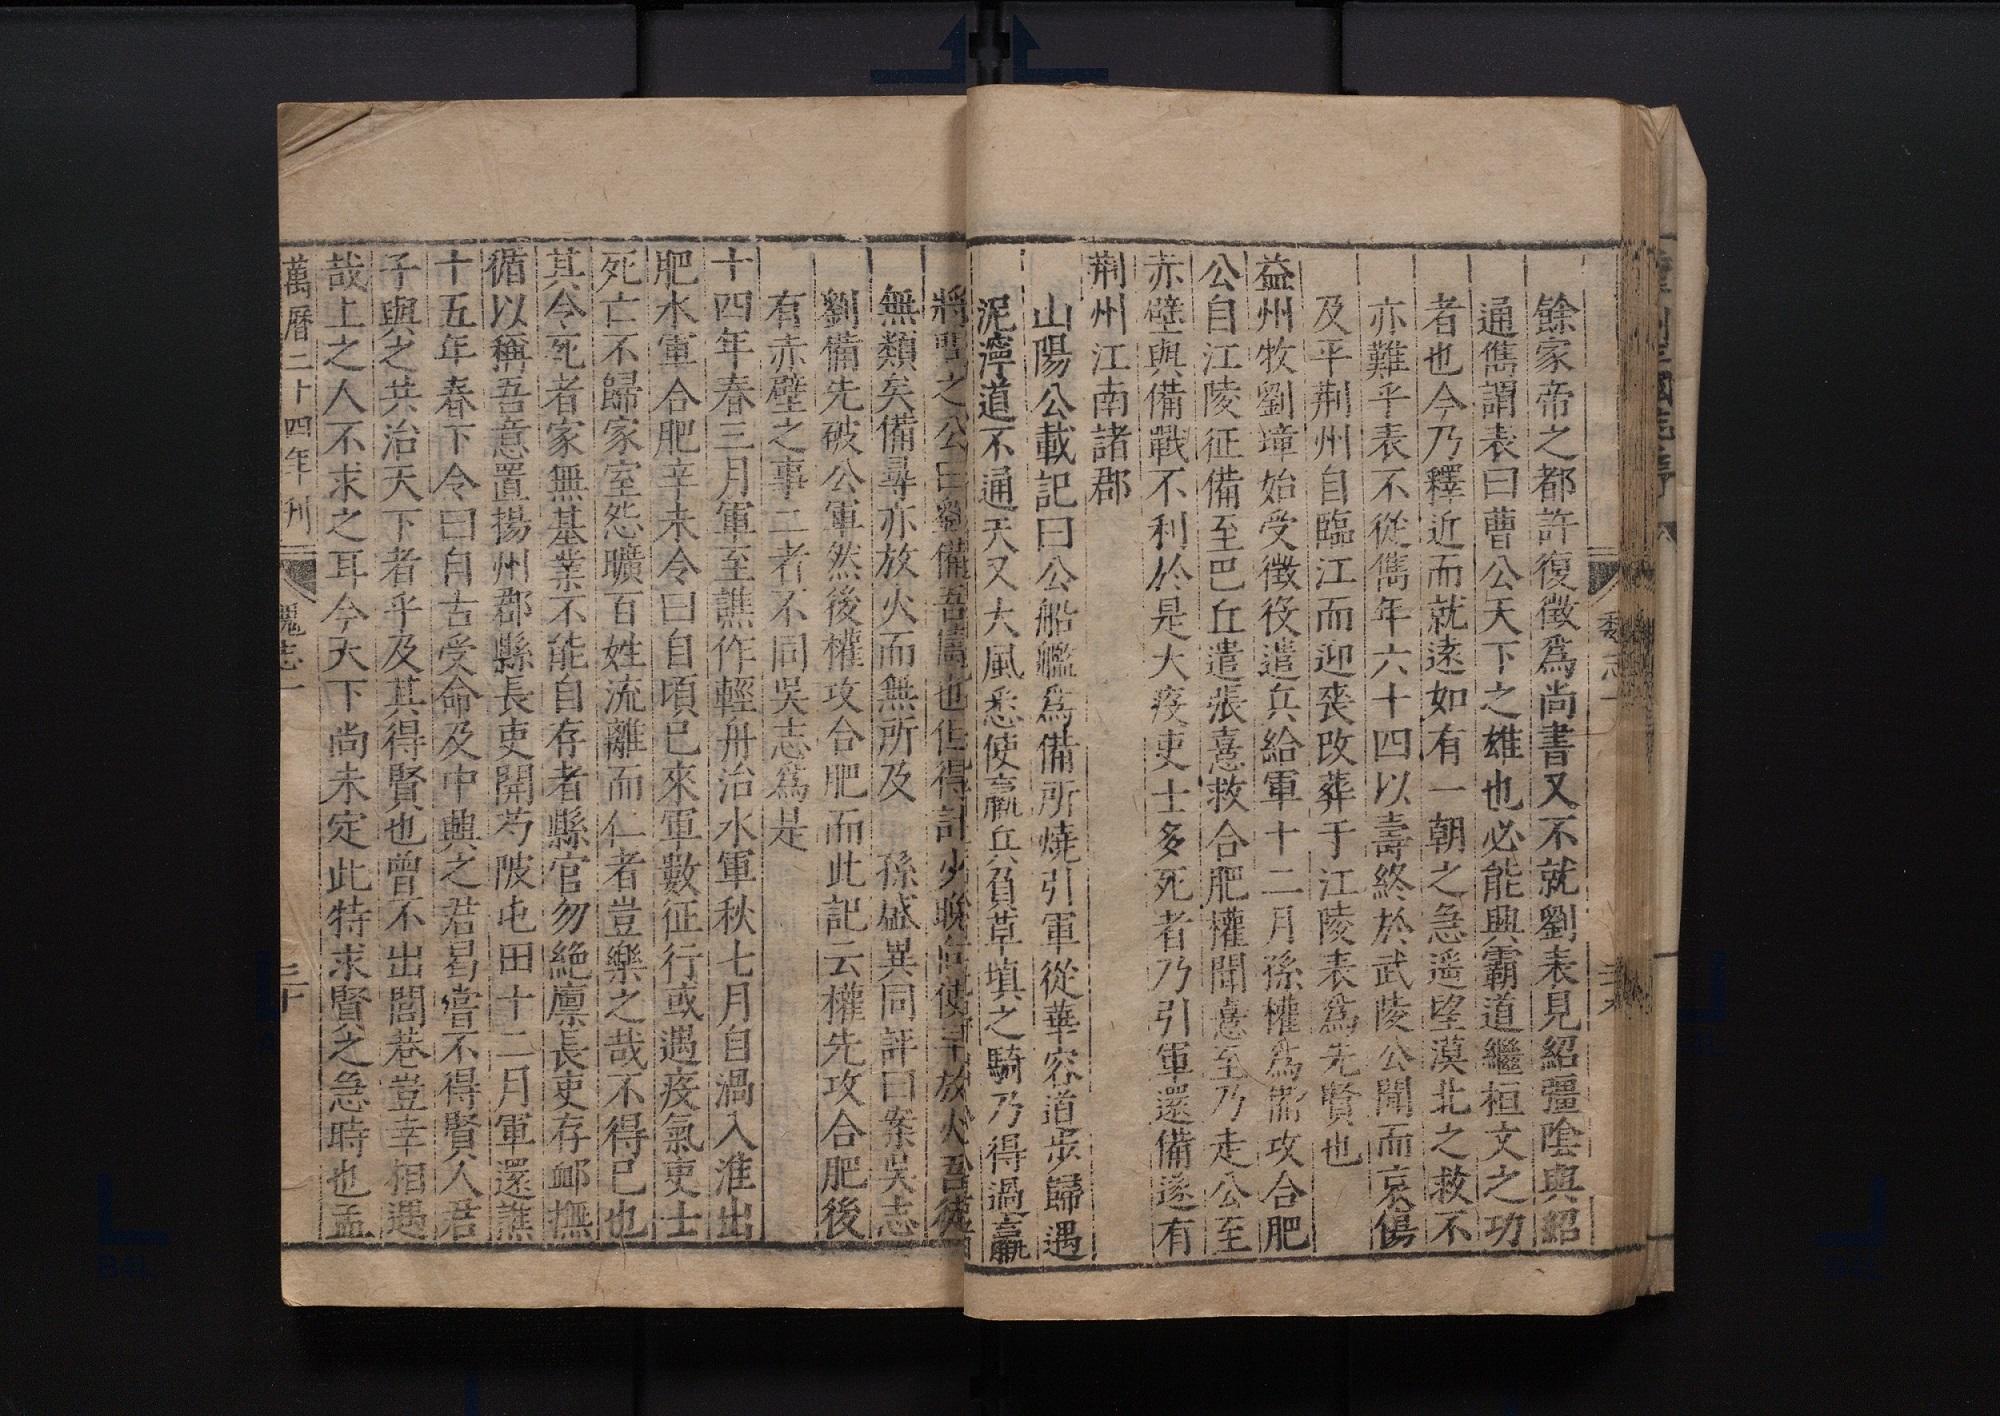 餘家帝之都許復徵爲尚書又不就劉表見紹彊陰與紹
通儁謂表曰曹公天下之雄也必能興霸道繼桓文之功
者也今乃釋近而就遠如有一朝之急遥望漠北之救不
亦難乎表不從儁年六十四以壽終於武陵公聞而哀傷
及平荆州自臨江而迎喪改葬于江陵表爲先賢也
益州牧劉璋始受徵役遣兵給軍十二月孫權爲備攻合肥
公自江陵征備至巴丘遣張憙救合肥權聞憙至乃走公至
赤壁與備戰不利於是大疫吏士多死者乃引軍還備遂有
荆州江南諸郡
山陽公載記曰公船艦爲備所燒引軍從華容道步歸遇
泥濘道不通天又大風悉使羸兵負草填之騎乃得過羸
將 之公曰劉備吾儔也但得計少晚 使 放火吾徒
無類矣備尋亦放火而無所及 孫盛異同評曰案吳志
劉備先破公軍然後權攻合肥而此記云權先攻合肥後
有赤壁之事二者不同吳志爲是
十四年春三月軍至譙作輕舟治水軍秋七月自渦入淮出
肥水軍合肥辛未令曰自頃已來軍數征行或遇疫氣吏士
死亡不歸家室怨曠百姓流離而仁者豈樂之哉不得已也
其令死者家無基業不能自存者縣官勿絶廪長吏存䘏撫
循以稱吾意置揚州郡縣長吏開芍陂屯田十二月軍還譙
十五年春下令曰自古受命及中興之君曷嘗不得賢人君
子與之共治天下者乎及其得賢也曾不出閭巷豈幸相遇
哉上之人不求之耳今天下尚未定此特求賢之急時也孟
萬曆二十四年刊 魏志一 三十